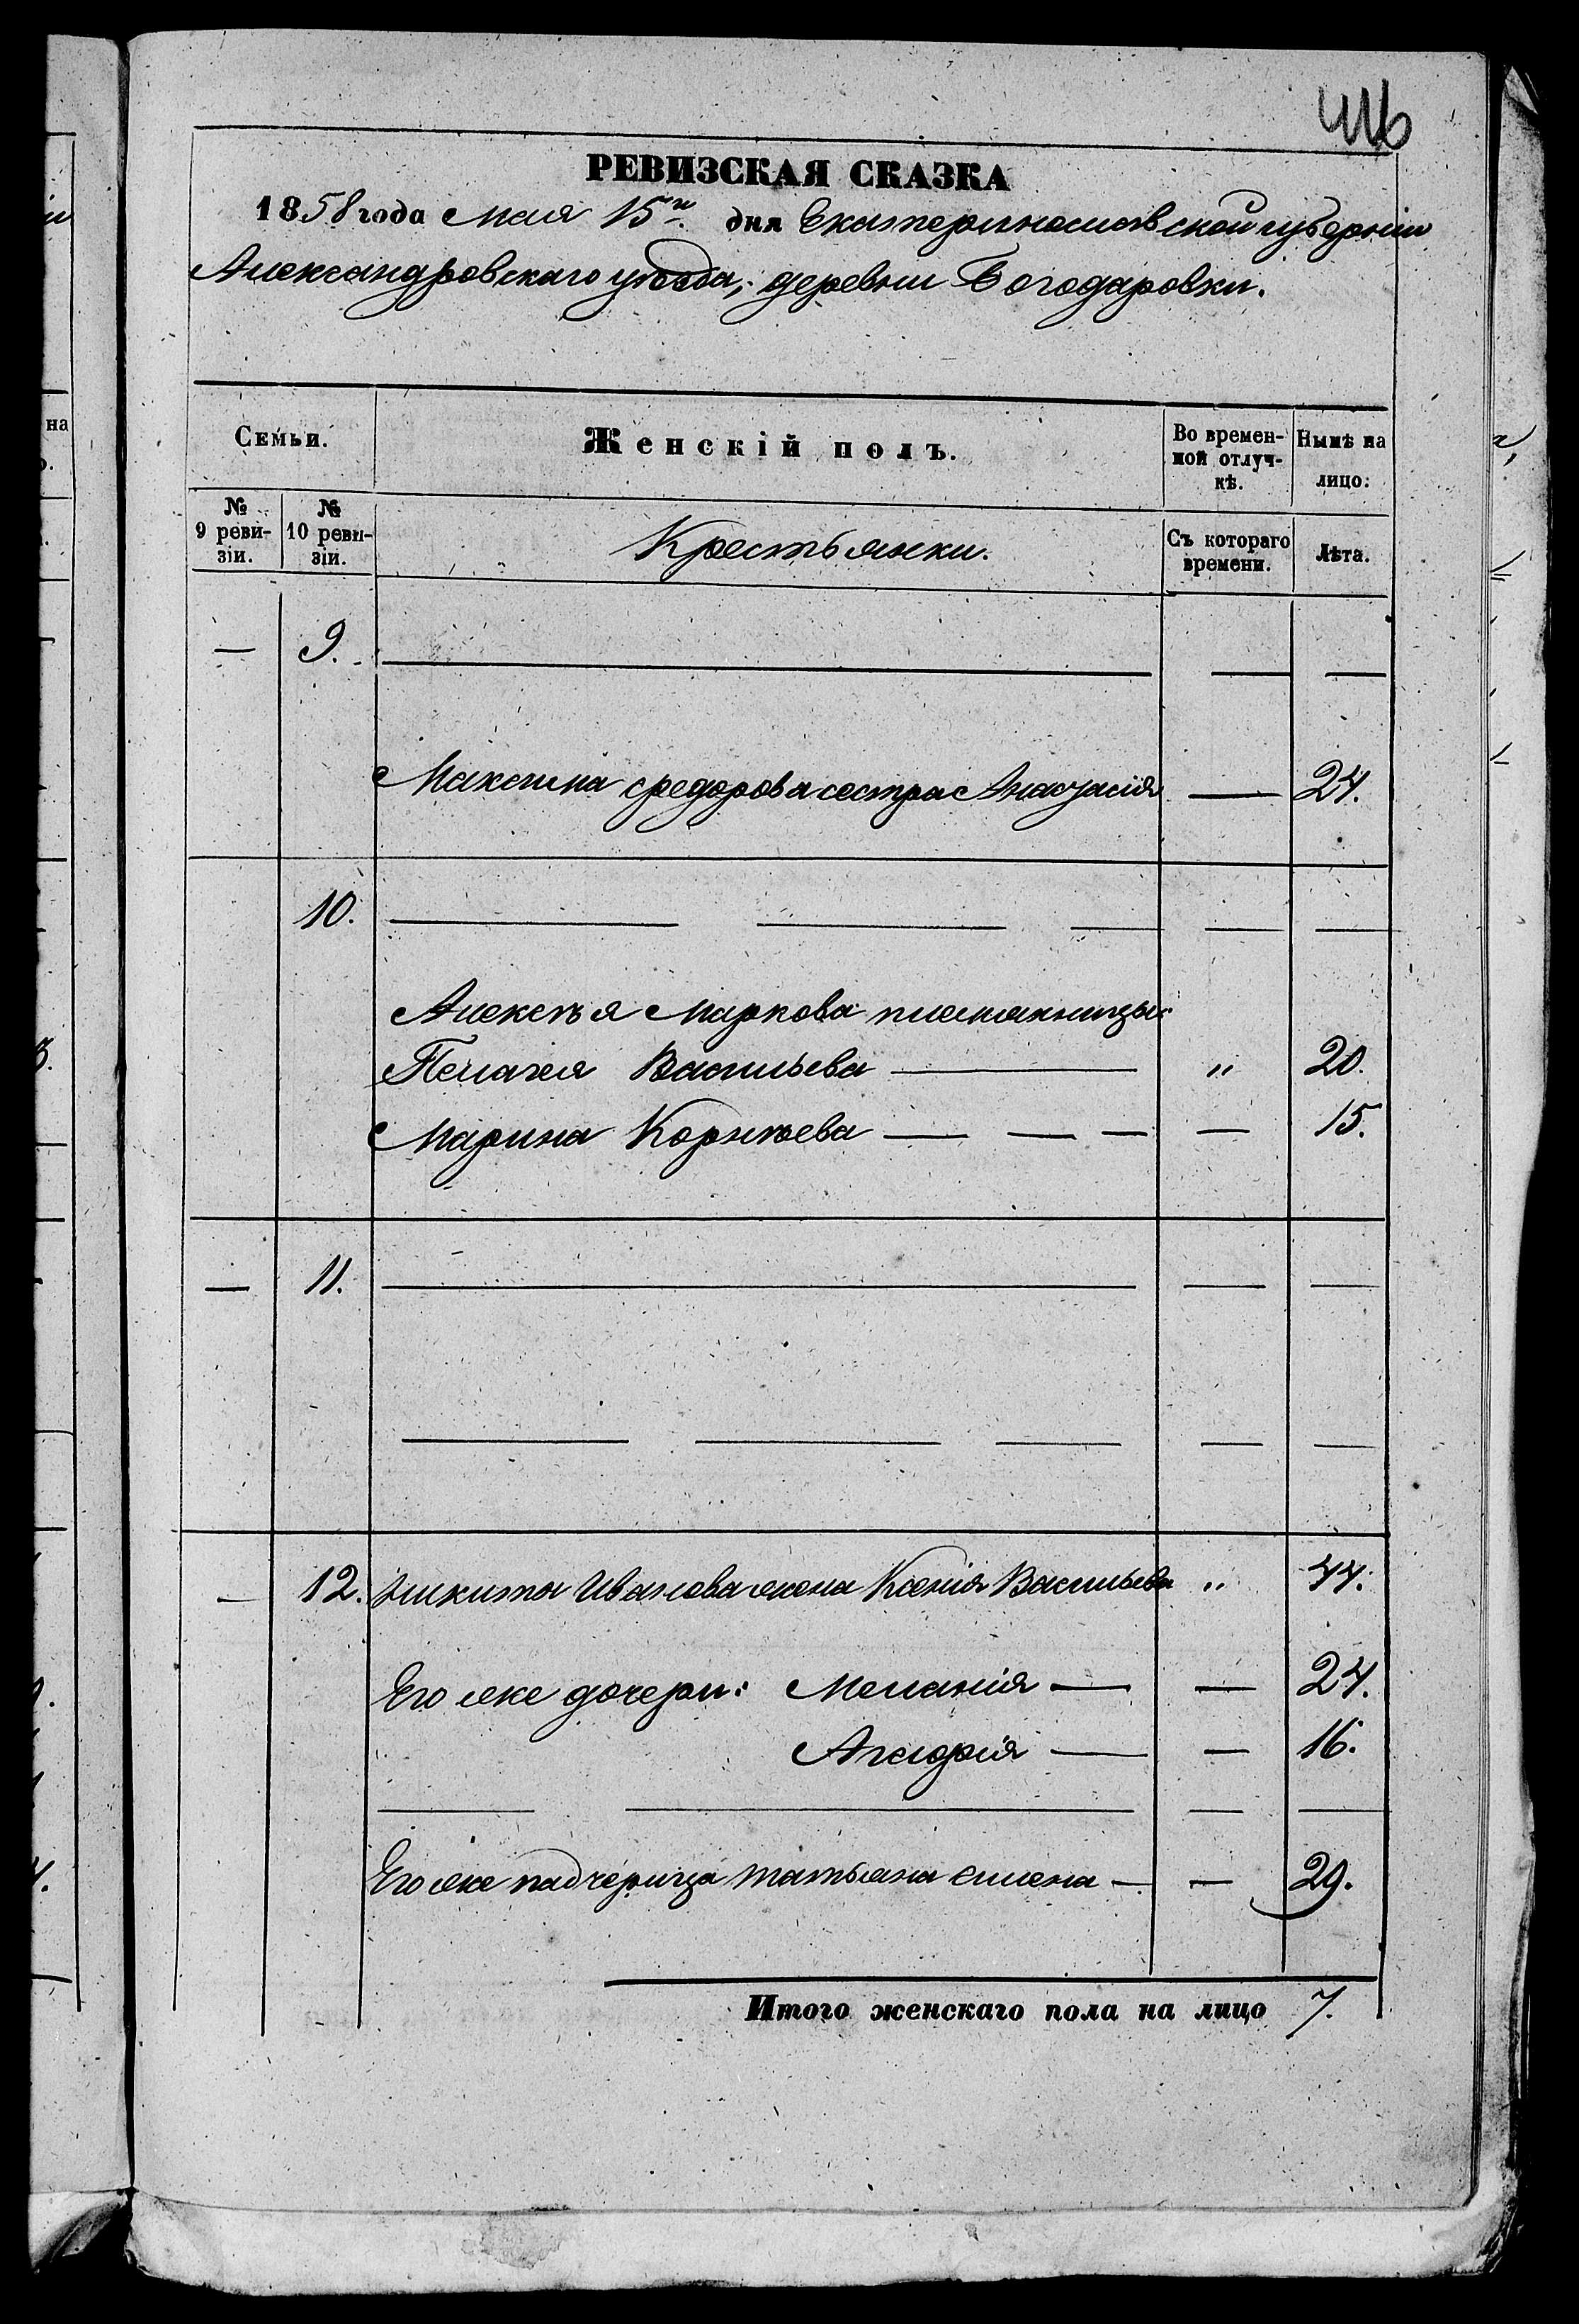 416
РЕВИЗСКАЯ СКАЗКА
1858 года Мая 15го дня Екатеринославской губерніи
Александровскаго уѣзда, деревни Богодаровки.
Семьи.
Женскій полъ.
Во времен-
ной отлуч-
кѣ.
Нынѣ на
лицо.
№
9 реви-
зіи.
№
10 реви-
зіи.
Крестьянки.
Съ котораго
времени.
Лѣта.
— 9. — — —
Максима Федорова сестра Анастасія — 24.
10. — — — — —
Алексѣя Маркова племянницы:
Пелагея Васильева — " 20.
Марина Корнѣева — — — — 15.
— 11. — — —
— — — — —
— 12. Никиты Иванова жена Ксенія Васильева " 44.
Его же дочери: Меланія — — 24.
— — 16.
— — — —
Его же падчерица Татьяна — — 29.
Итого женскаго пола на лицо 7.